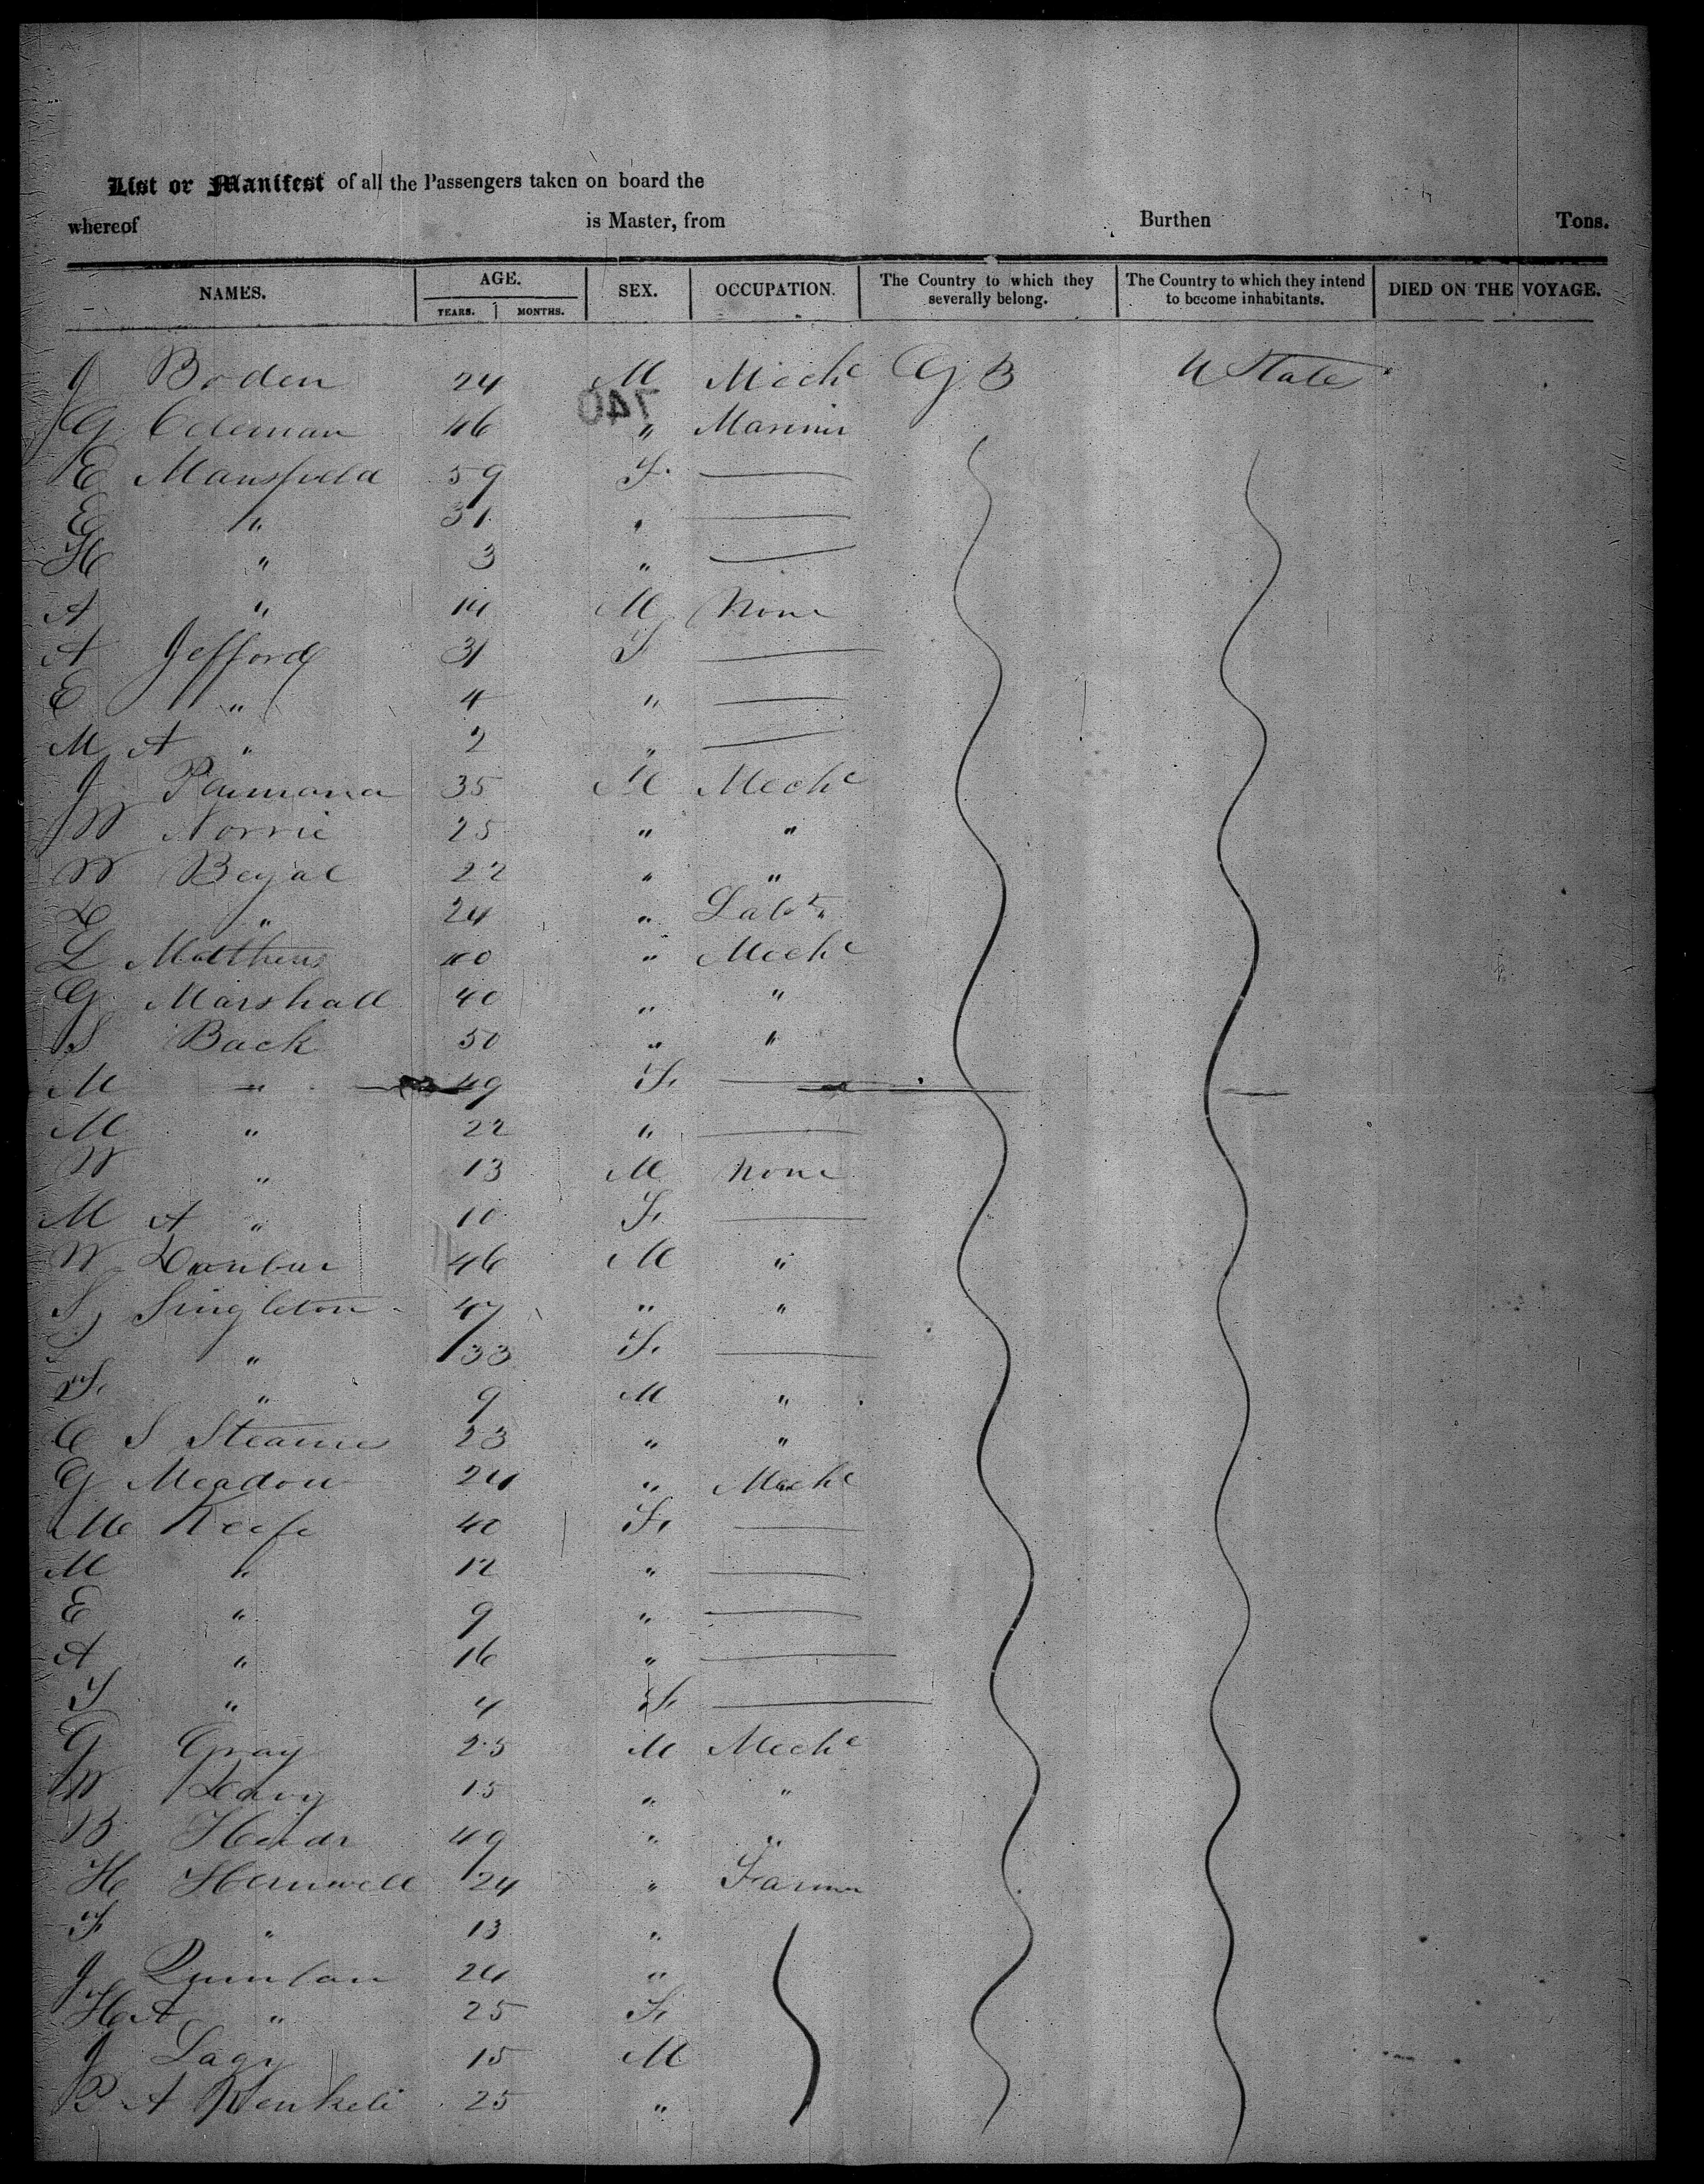 List or Manifest of all the Passengers taken on board the
whereof is Master, from Burthen Tons.
NAMES. AGE. SEX. OCCUPATION. The Country to which they severally belong. The Country to which they intend to become inhabitants. DIED ON THE VOYAGE.
YEARS. MONTHS.
J Boden 24 M Mechc G B U State
740
G Coleman 46 " Marinir
E Mansfield 59 F. —
E " 31 " —
H " 3 " —
A " 14 M None
A Jefford 31 F —
E " 4 " —
M A " 2 " —
J 35 M Mechc
W Norrie 25 " "
W 22 " "
" 24 " Labr "
L Matthews 40 " Mechc
G Marshall 40 " "
S Back 50 " "
M " 49 F. —
M " 22 " —
W " 13 M None
M A " 10 F. —
W Dunbar 46 M "
S Singleton 47 " "
" 33 F. —
F. " 9 M "
C S 23 " "
G Meadow 24 " Mechc
M Keefe 40 F. —
M " 12 " —
E " 9 " —
A " 16 " —
S " 4 F. —
G Gray 25 M Mechc
W 15 " "
B 49 " "
H 24 " Farmer
F " 13 "
J Quinlan 24 "
H A " 25 F.
J Lagy 15 M
P A 25 "